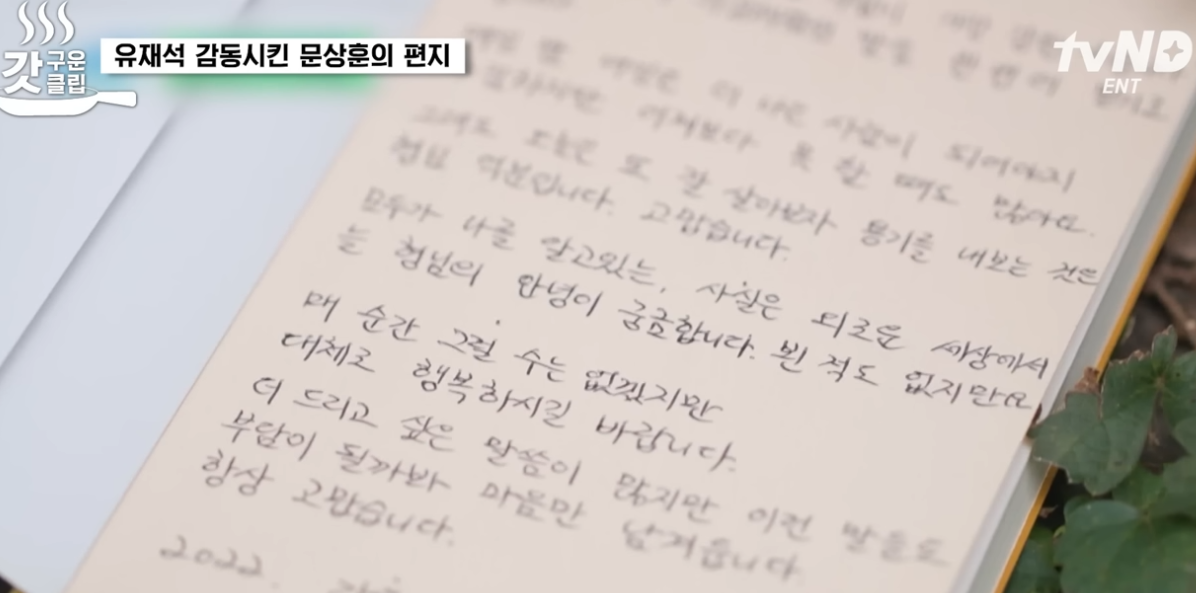 갓구운클립
유재석 감동시킨 문상훈의 편지
tvND
ENT
더 나은 사람이 되어야지
어제보다 못 할 때도 많아요.
그래도 오늘은 또 잘 살아보자 용기를 내보는 것은
형님 덕분입니다. 고맙습니다.
모두가 나를 알고있는, 사실은 외로운 세상에서
는 형님의 안녕이 궁금합니다. 뵌 적도 없지만요
매 순간 그럴 수는 없겠지만
대체로 행복하시길 바랍니다.
더 드리고 싶은 말씀이 많지만 이런 말들도
부담이 될까봐 마음만 남겨둡니다.
항상 고맙습니다.
2022.